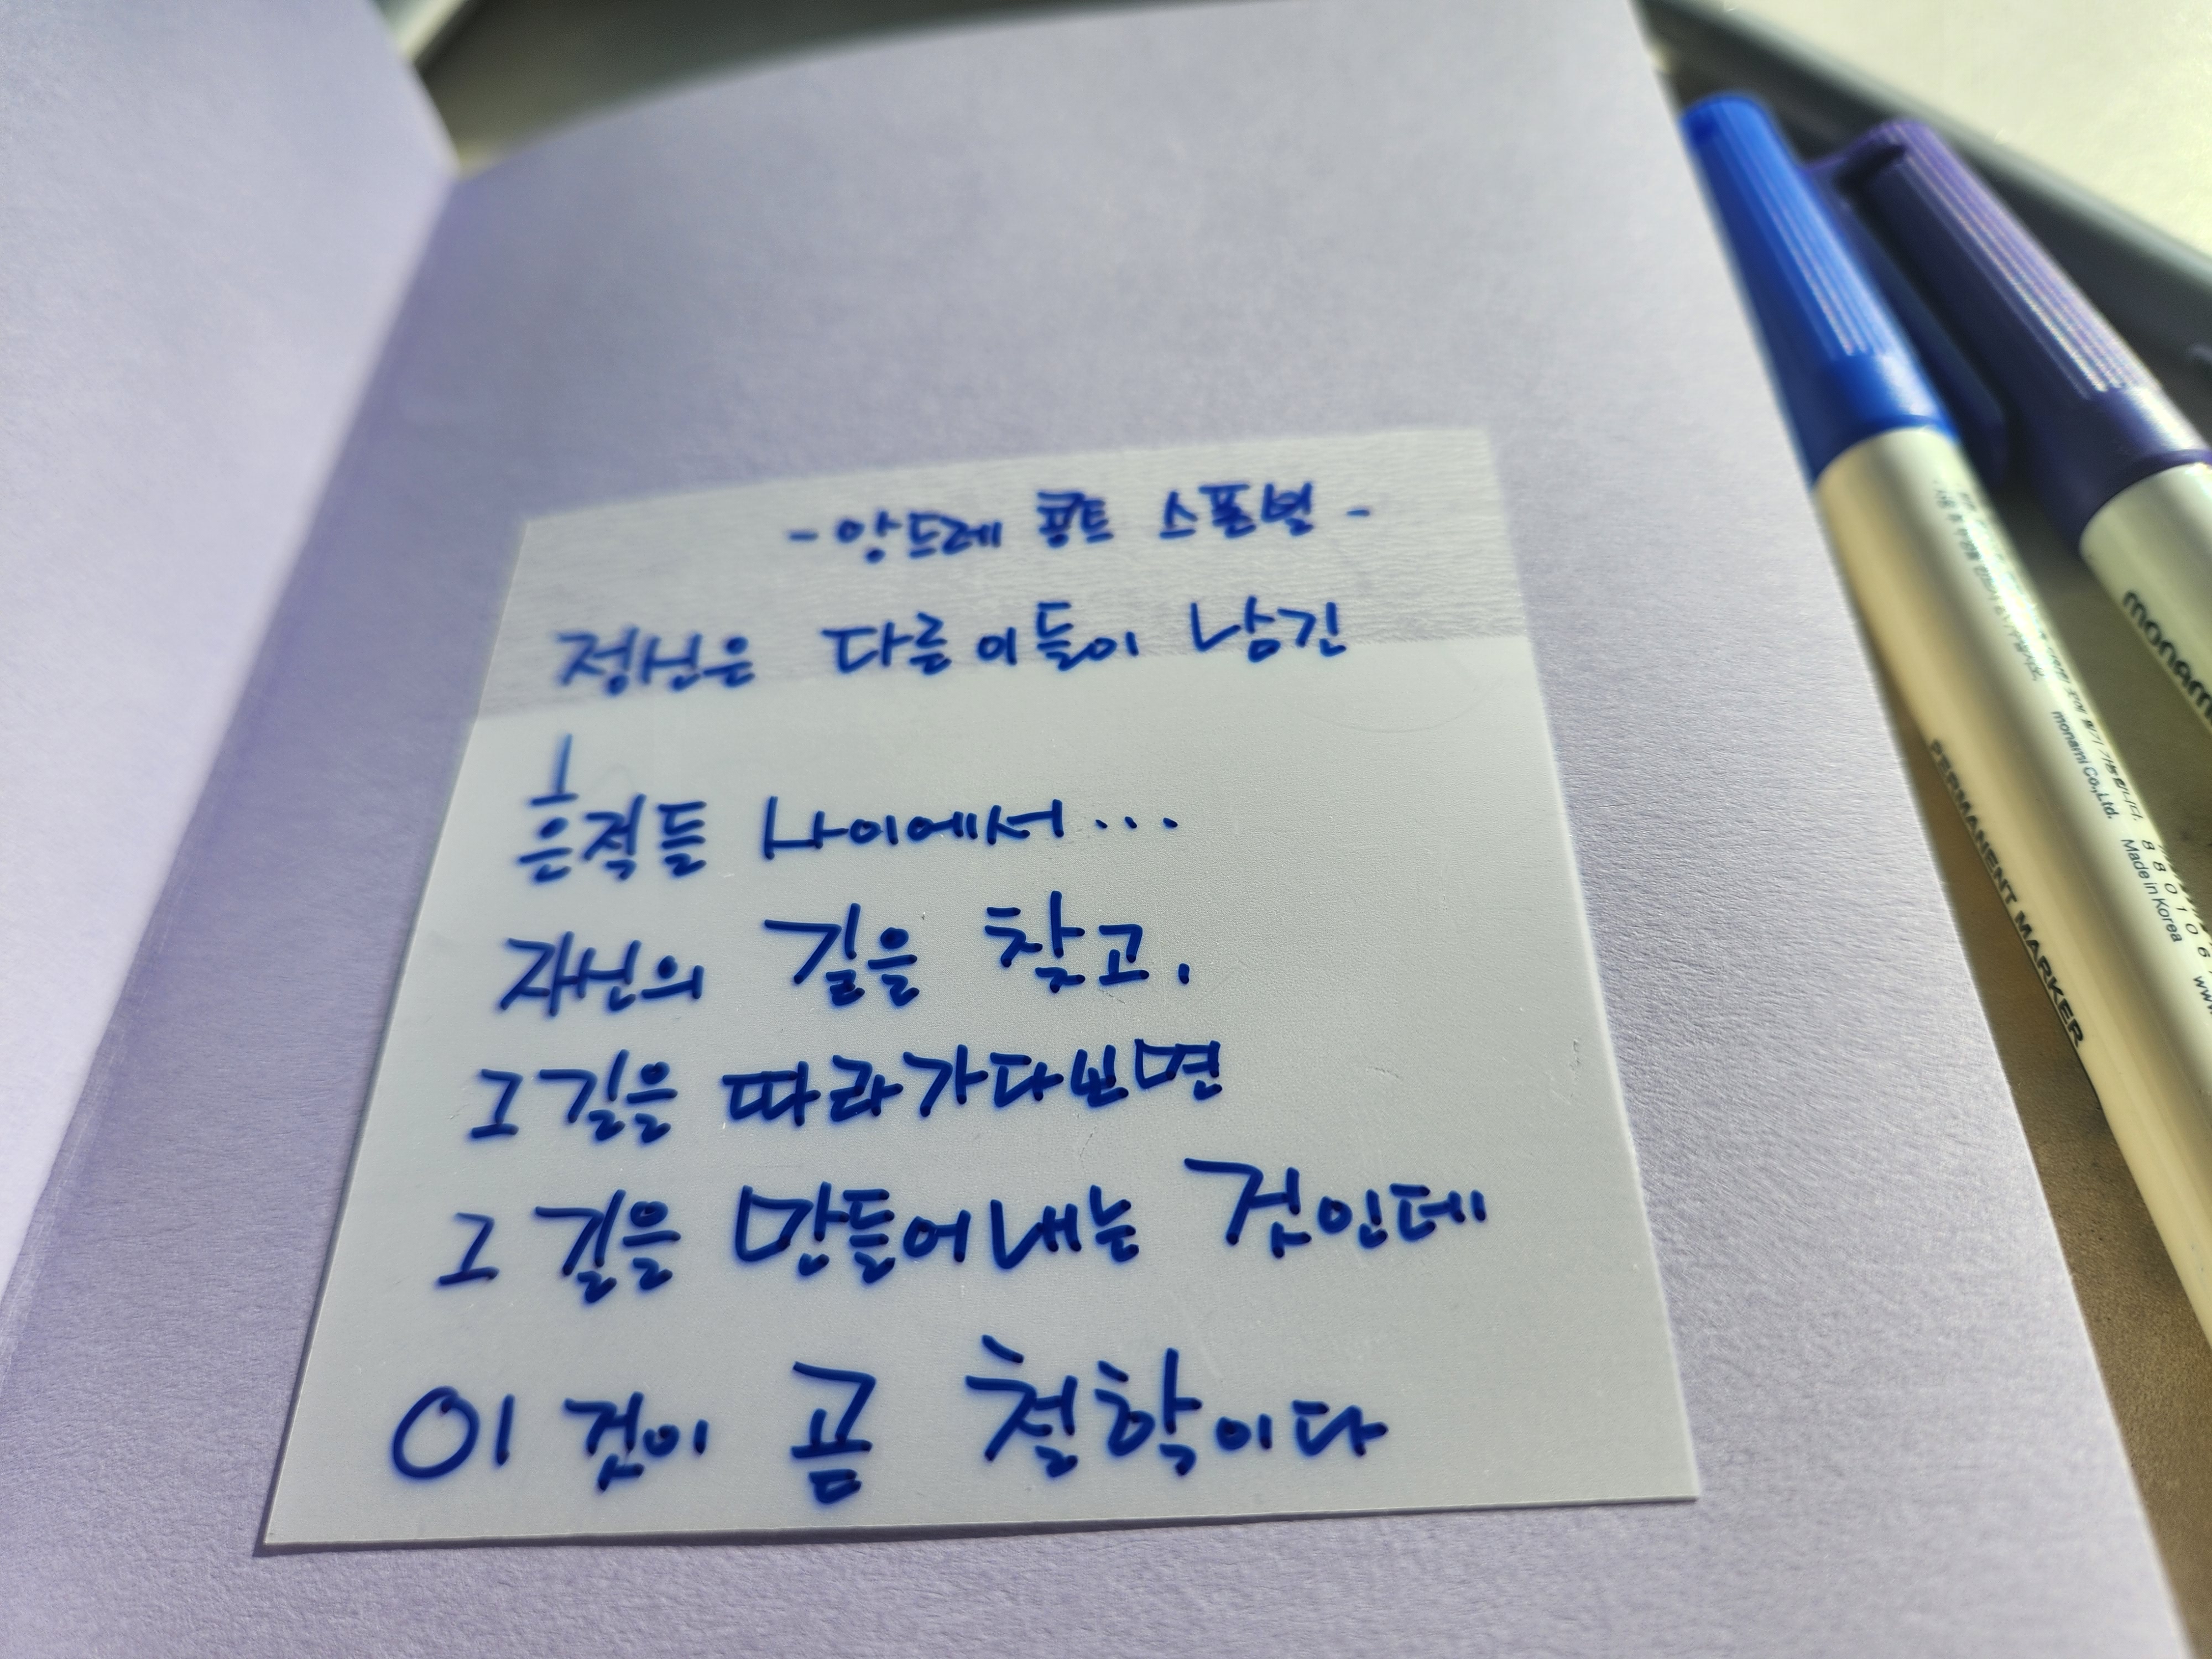 - 앙드레 콩트 스폰빌 -
정신은 다른 이들이 남긴
흔적들 사이에서...
자신의 길을 찾고,
그 길을 따라가다보면
그 길을 만들어내는 것인데
이 것이 곧 철학이다
monami Co.,Ltd.
Made in Korea
PERMANENT MARKER
monami